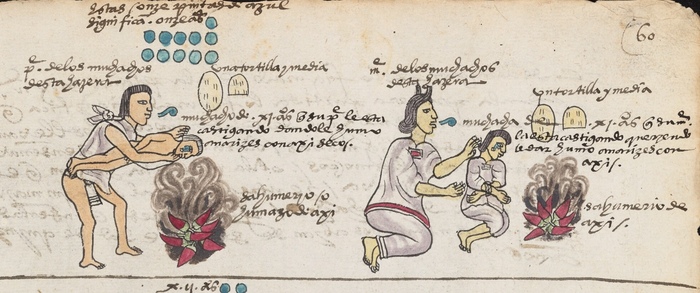 estas onze pintas de azul
significa. onze años
60
pe. de los muchachos
desta hazera
una tortilla y media
muchacho de. xi. años q̃ su pe le esta
castigando dandole humo
a narizes con axi secos.
sahumerio /o
humazo de axi
me. de los muchachos
desta hazera
un tortilla y media
muchacha de. xi. años q̃ su me.
la esta castigando queriendo
le dar humo a narizes con
axi /.
sahumerio de
axi /.